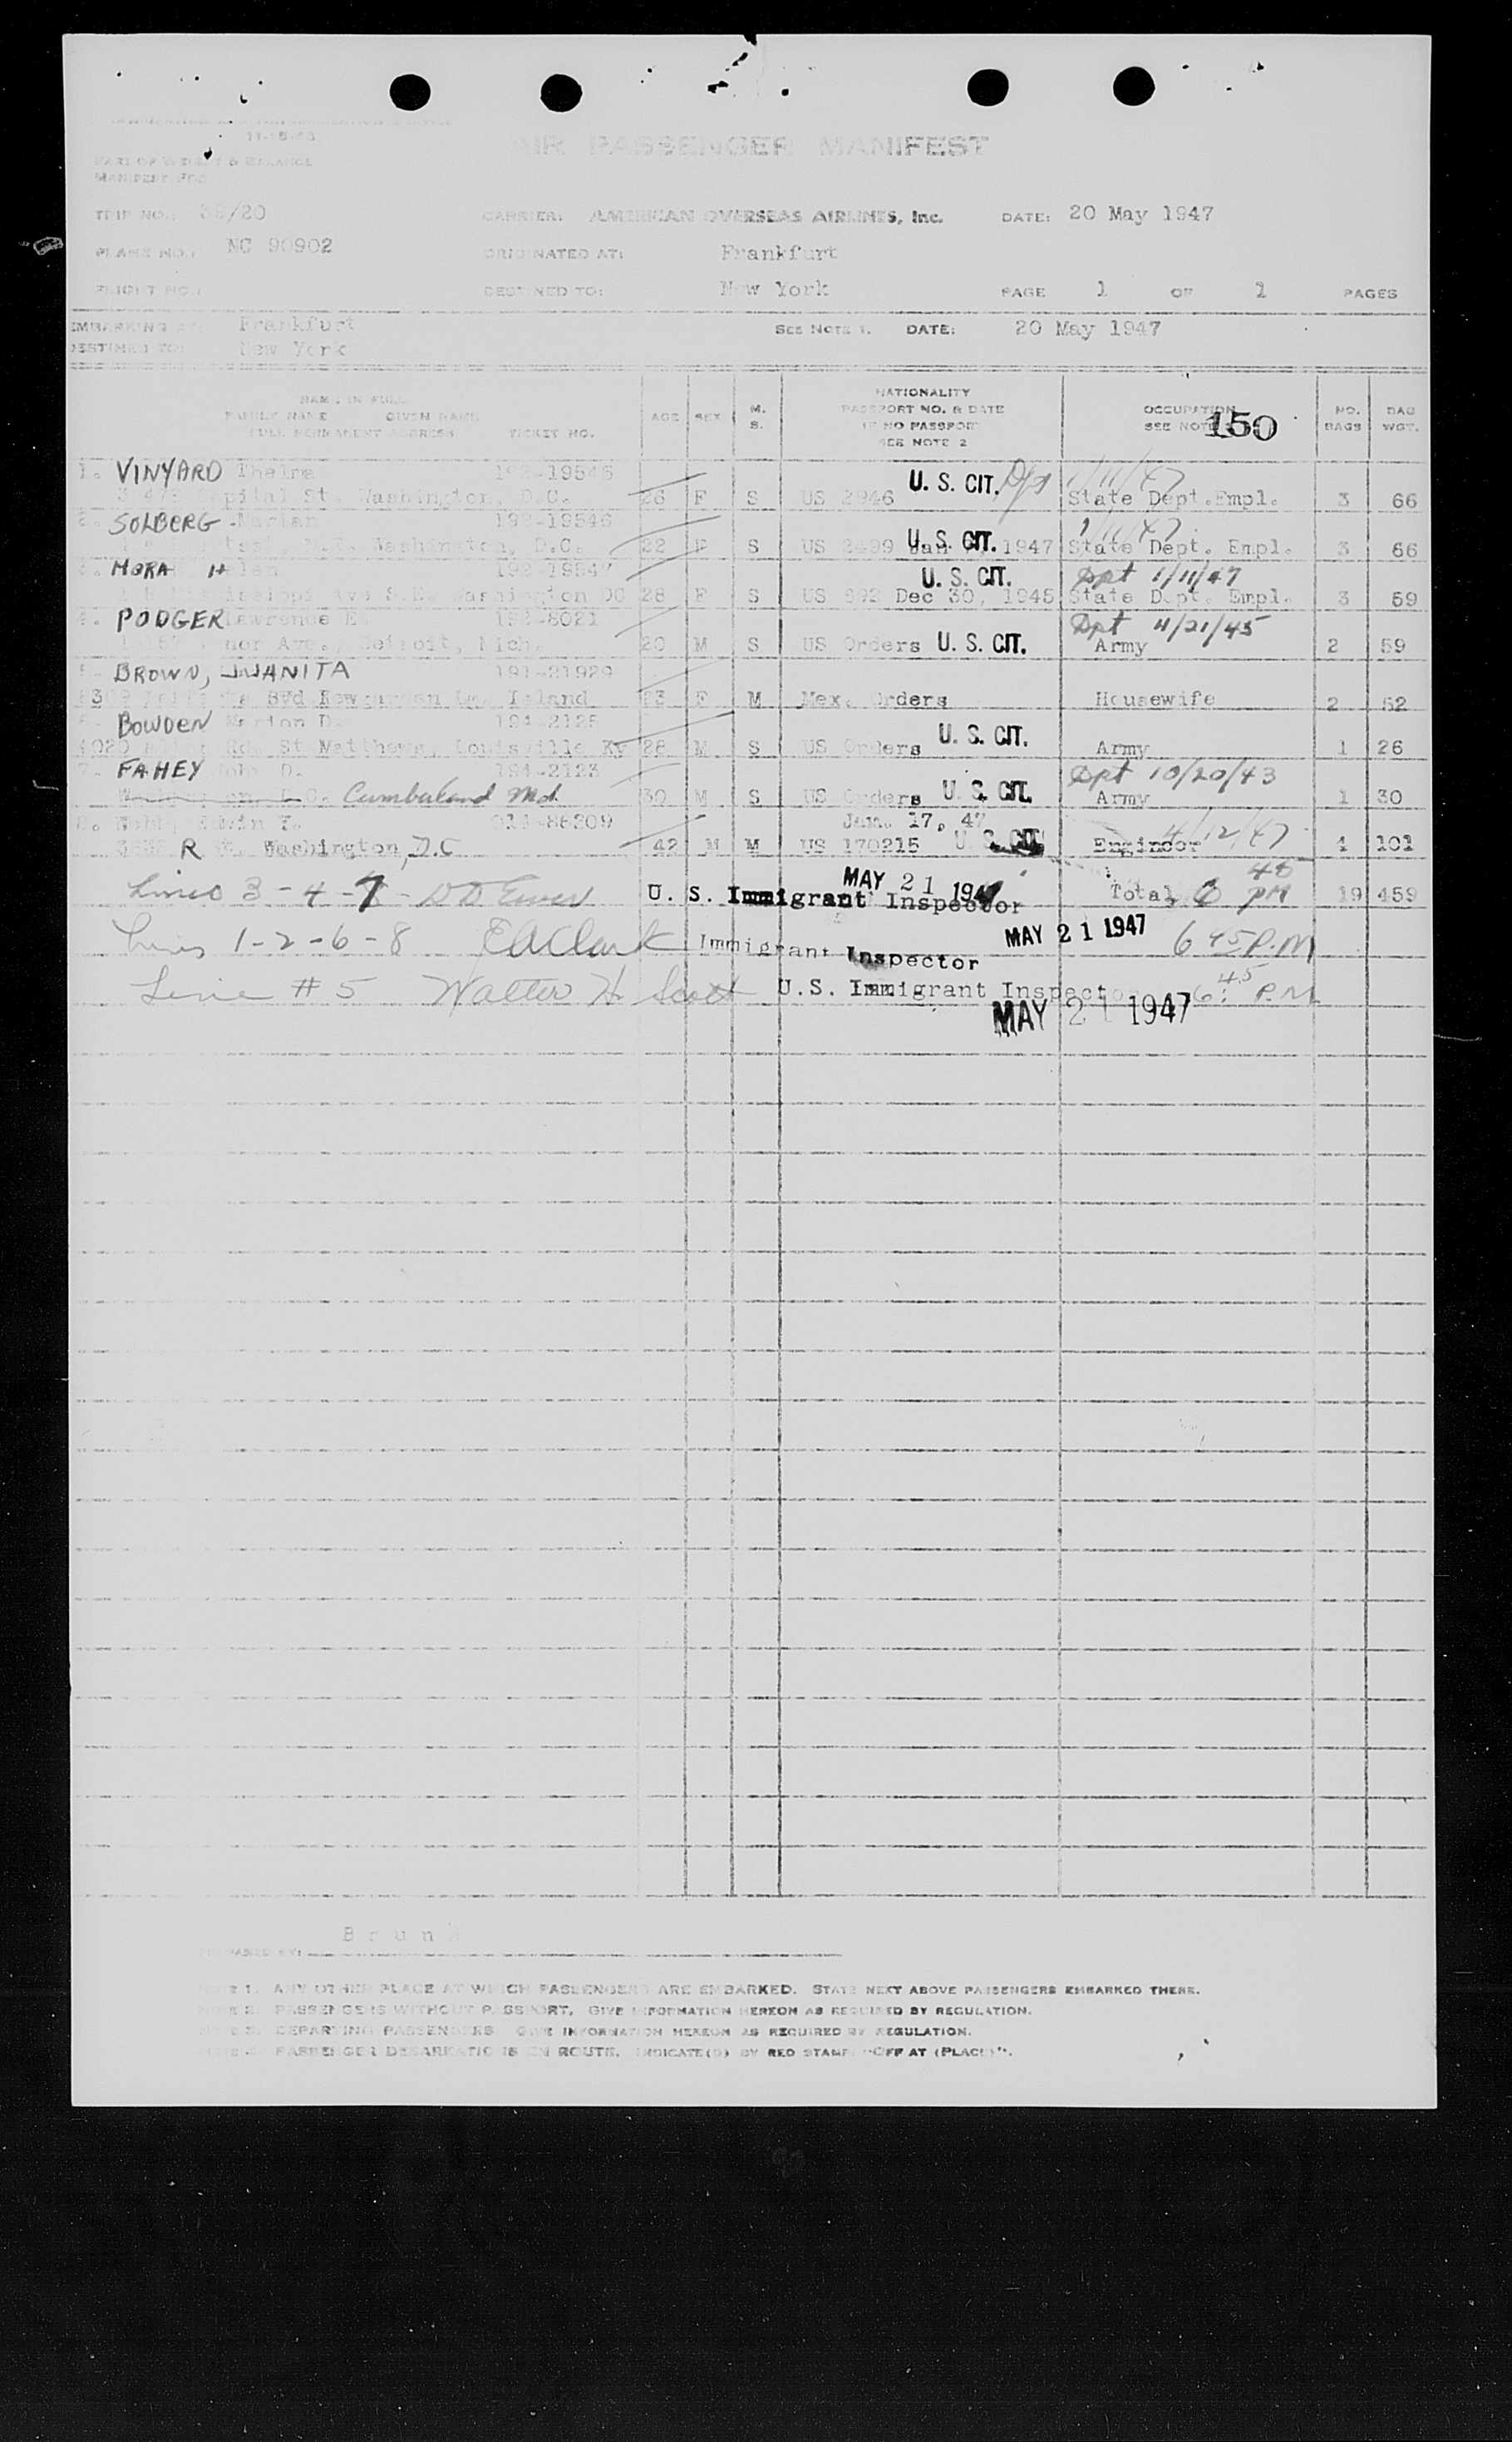 11-15-46
PART OF WEIGHT & BALANCE
MANIFEST FOR
AIR PASSENGER MANIFEST
TRIP NO.: /20 CARRIER: AMERICAN OVERSEAS AIRLINES, Inc. DATE: 20 May 1947
PLANE NO.: NC 90902 ORIGINATED AT: Frankfurt
FLIGHT NO.: DESTINED TO: New York PAGE 1 OF 1 PAGES
EMBARKING AT: Frankfurt SEE NOTE 1. DATE: 20 May 1947
DESTINED TO: New York
NAME IN FULL
FAMILY NAME GIVEN NAME
FULL PERMANENT ADDRESS TICKET NO. AGE SEX M. S. NATIONALITY PASSPORT NO. & DATE IF NO PASSPORT SEE NOTE 2 OCCUPATION SEE NOTE NO. BAGS BAG WGT.
150
1. VINYARD Thelma 192-19545 U. S. CIT. Dpt 1/11/47
Capital St. Washington, D.C. 26 F S US 2946 State Dept. Empl. 3 66
2. SOLBERG Marian 192-19546 1/11/47
Washington, D.C. 22 F S US 2499 Jan 1947 U. S. CIT. State Dept. Empl. 3 66
3. HORA Helen 192-19547 U. S. CIT. Dpt 1/11/47
Ave S.E. Washington DC 28 F S US 892 Dec 30, 1945 State Dept. Empl. 3 59
4. PODGER Lawrence E. 192-8021 Dpt 11/21/45
Ave., Detroit, Mich. 20 M S US Orders U. S. CIT. Army 2 59
5. BROWN, JUANITA 191-21929
Blvd Island 23 F M Mex. Orders Housewife 2 52
6. BOWDEN Marion D. 194-2125 U. S. CIT.
4020 Rd. St Matthews, Louisville Ky 28 M S US Orders Army 1 26
7. FAHEY John D. 194-2123 Dpt 10/20/43
Cumberland Md. 30 M S US Orders U. S. CIT. Army 1 30
8. Edwin 86209 Jan. 17, 47
R St. Washington, D.C 42 M M US 170215 U. S. CIT. Engineer 4/12/47 4 101
Lines 3-4-7 U. S. Immigrant Inspector MAY 21 1947 Total 6 45 PM 19 459
Lines 1-2-6-8 E A Clark Immigrant Inspector MAY 21 1947 6 45 P.M
Line #5 Walter H. Scott U.S. Immigrant Inspector 6:45 P.M.
MAY 21 1947
PREPARED BY:
NOTE 1. ANY OTHER PLACE AT WHICH PASSENGERS ARE EMBARKED. STATE NEXT ABOVE PASSENGERS EMBARKED THERE.
NOTE 2. PASSENGERS WITHOUT PASSPORT, GIVE INFORMATION HEREON AS REQUIRED BY REGULATION.
NOTE 3. DEPARTING PASSENGERS GIVE INFORMATION HEREON AS REQUIRED BY REGULATION.
NOTE 4. PASSENGER DEBARKATIONS EN ROUTE, INDICATE(D) BY RED STAMP "OFF AT (PLACE)".